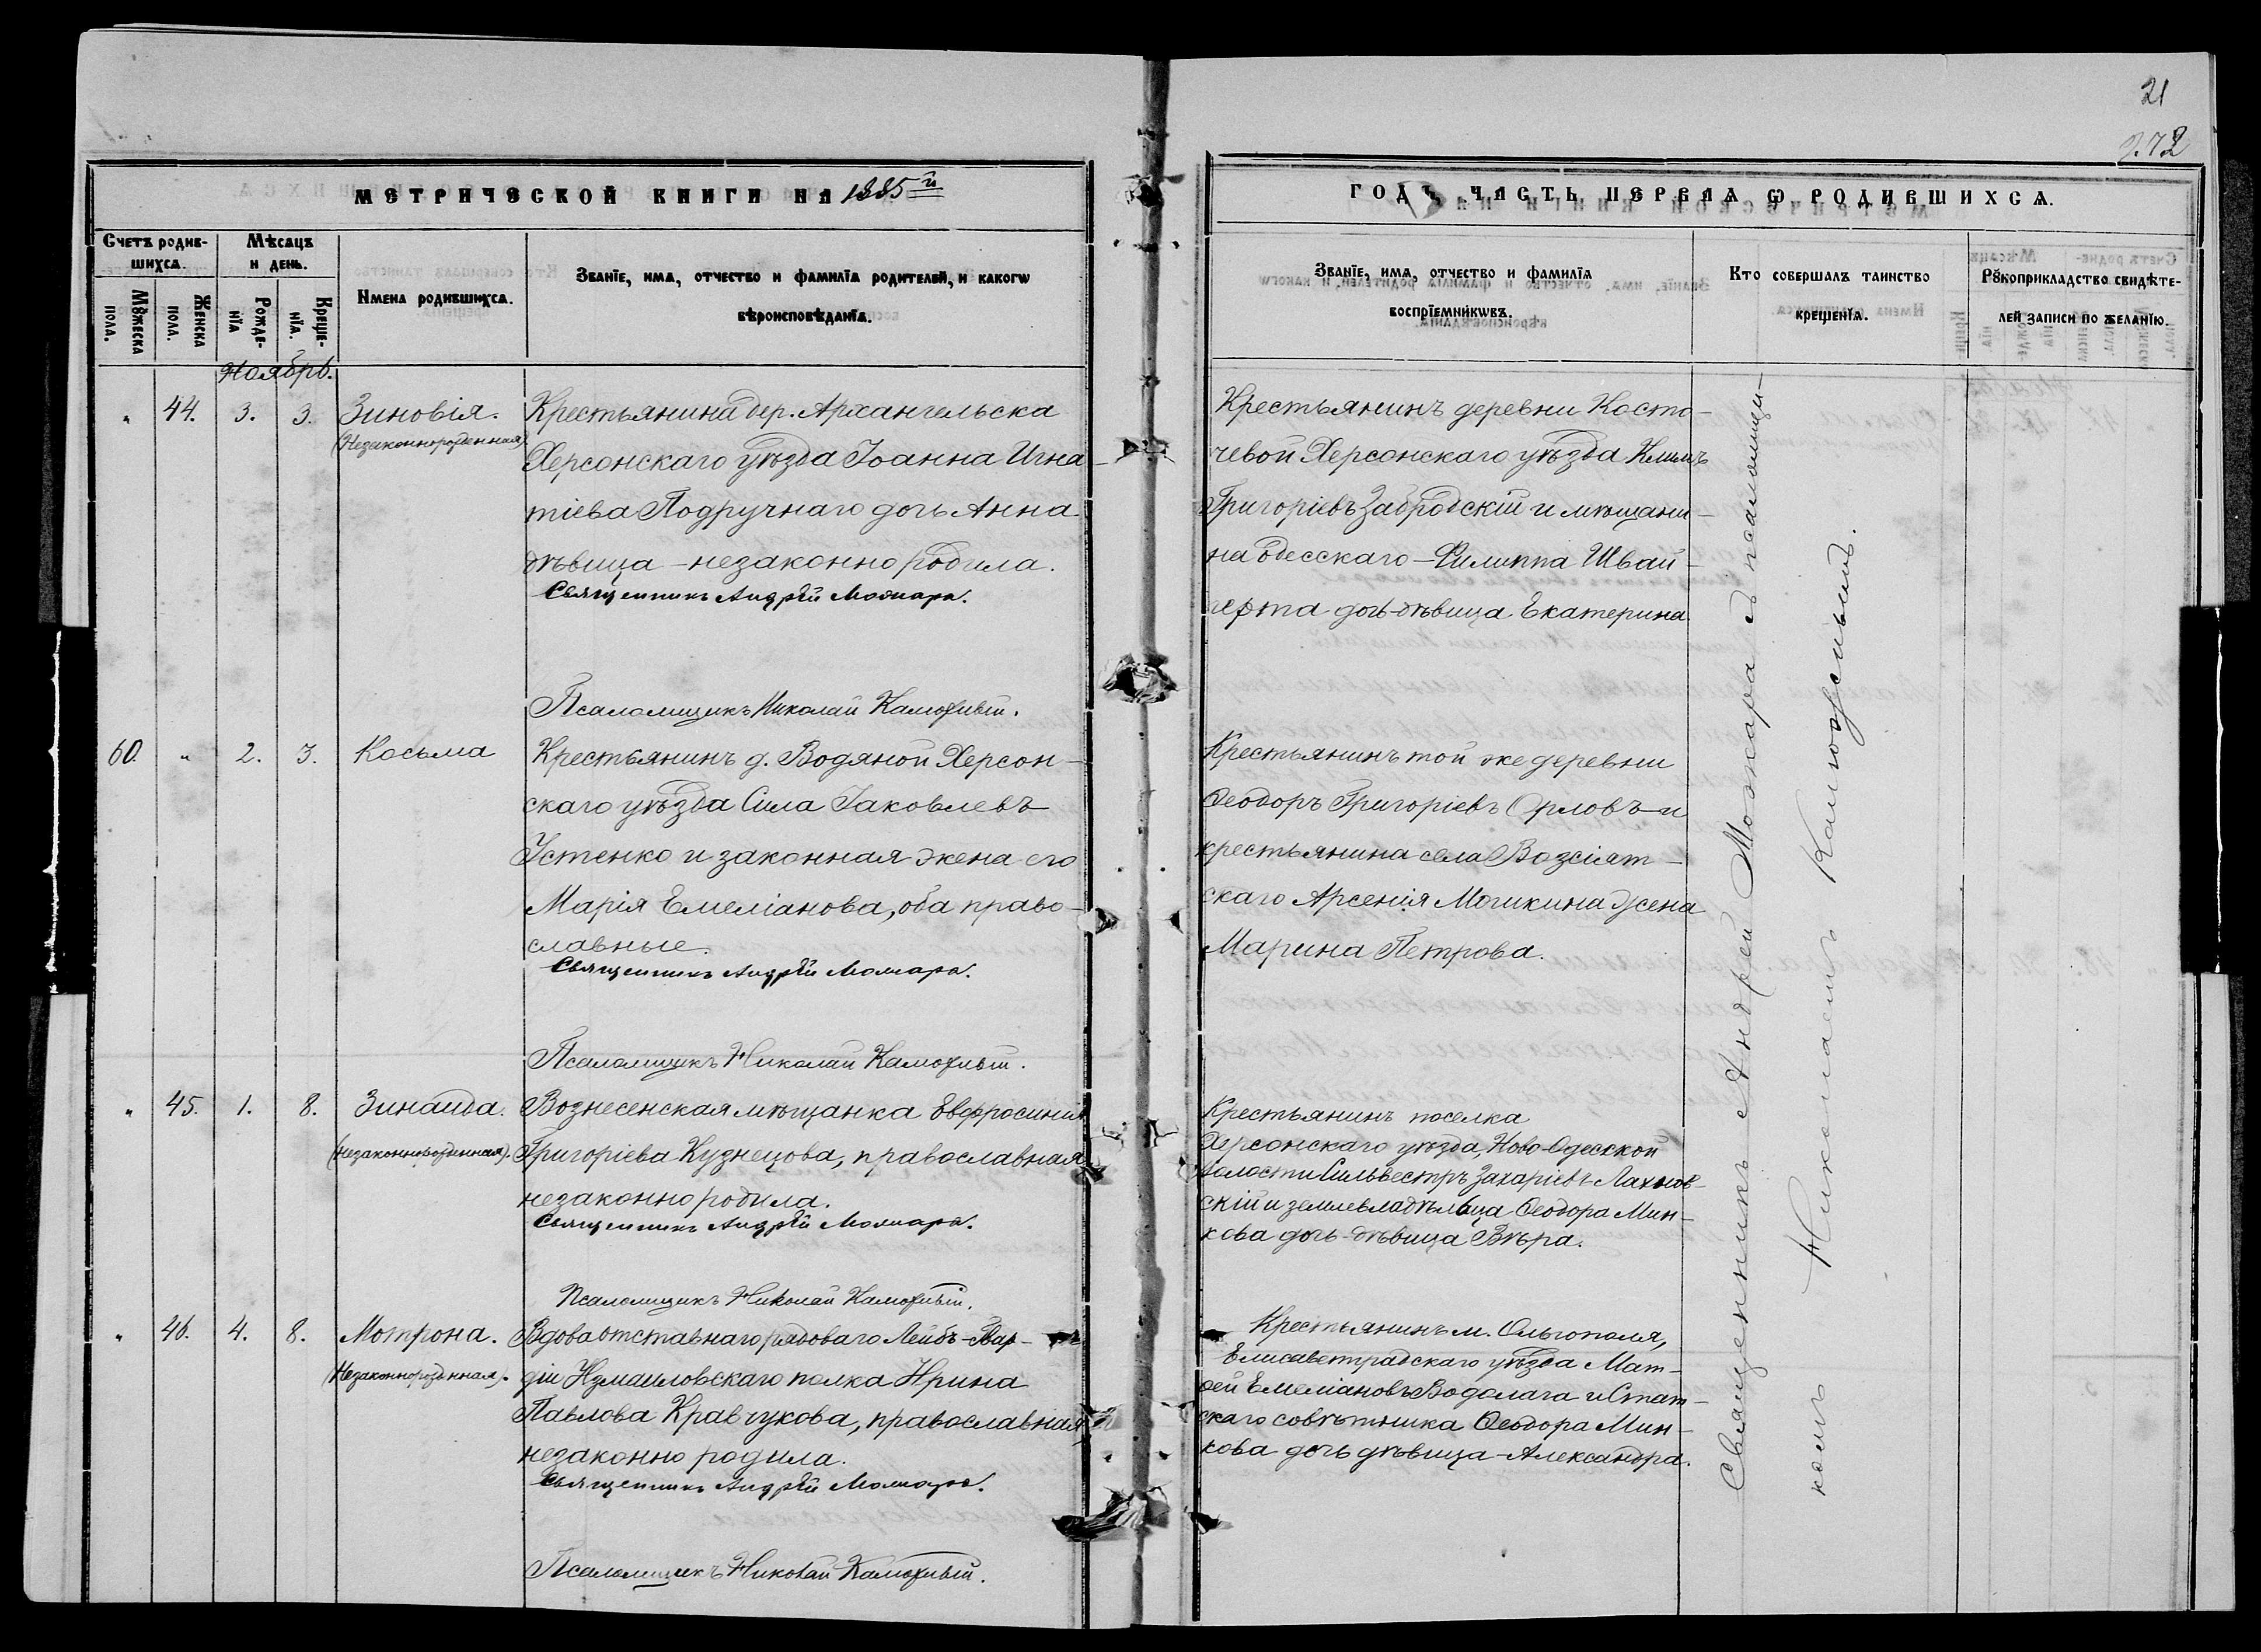 21
272
МЕТРИЧЕСКОЙ КНИГИ НА 1885й
ГОДЪ, ЧАСТЬ ПЕРВАЯ Ѿ РОДИВШИХСѦ.
Счетъ родив-
шихсѧ.
Мѣсѧцъ
и день.
Мꙋжеска
пола.
Женска
пола.
Рожде-
нїѧ
Креще-
нїѧ.
Имена родившихсѧ.
Званїе, имѧ, отчество и фамилїѧ родителей, и какогѡ
вѣроисповѣданїѧ.
Званїе, имѧ, отчество и фамилїѧ
воспрїемникѡвъ.
Кто совершалъ таинство
крещенїѧ.
Рꙋкоприкладство свидѣте-
лей записи по желанїю.
Ноябрь.
" 44. 3. 3. Зиновія.
(Незаконнорожденная)
Крестьянина дер. Архангельска
Херсонскаго уѣзда Іоанна Игна-
тіева Подручнаго дочь Анна
дѣвица - незаконно родила.
Священникъ Андрей Можара.
Псаломщикъ Николай Камюжный.
Крестьянинъ деревни Косто-
чевой Херсонскаго уѣзда Климъ
Григоріевъ Забродскій и мѣщани-
на Одесскаго - Филиппа Швай-
герта дочь-дѣвица Екатерина
60. " 2. 3. Косьма
Крестьянинъ д. Водяной Херсон-
скаго уѣзда Сила Іаковлевъ
Устенко и законная жена его
Марія Емеліанова, оба право-
славные.
Священникъ Андрей Можара.
Псаломщикъ Николай Камюжный.
Крестьянинъ той же деревни
Ѳеодоръ Григоріевъ Орловъ и
крестьянина села Возсіят-
скаго Арсенія Мошкина жена
Марина Петрова.
" 45. 1. 8. Зинаида.
(незаконнорожденная).
Вознесенская мѣщанка Евфросинія
Григоріева Кузнецова, православная
незаконно родила.
Священникъ Андрей Можара.
Псаломщикъ Николай Камюжный.
Крестьянинъ поселка
Херсонскаго уѣзда, Ново-Одесской
волости Сильвестръ Захаріевъ Лахнов-
скій и землевладѣльца Ѳеодора Мин-
кова дочь-дѣвица Вѣра.
" 46. 4. 8. Мотрона.
(Незаконнорожденная).
Вдова отставнаго рядоваго Лейбъ-Гвар-
діи Измаиловскаго полка Ирина
Павлова Кравчукова, православная
незаконно родила.
Священникъ Андрей Можара.
Псаломщикъ Николай Камюжный.
Крестьянинъ м. Ольгополя,
Елисаветградскаго уѣзда Мат-
ѳей Емеліановъ Водолага и Стат-
скаго совѣтника Ѳеодора Мин-
кова дочь дѣвица - Александра.
Священникъ Андрей Можара съ псаломщи-
комъ Николаемъ Камюжнымъ.